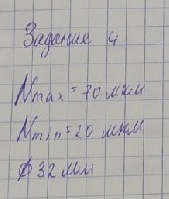 Задание 4
Nmax = 70 мкм
Nmin = 20 мкм
⌀32 мм